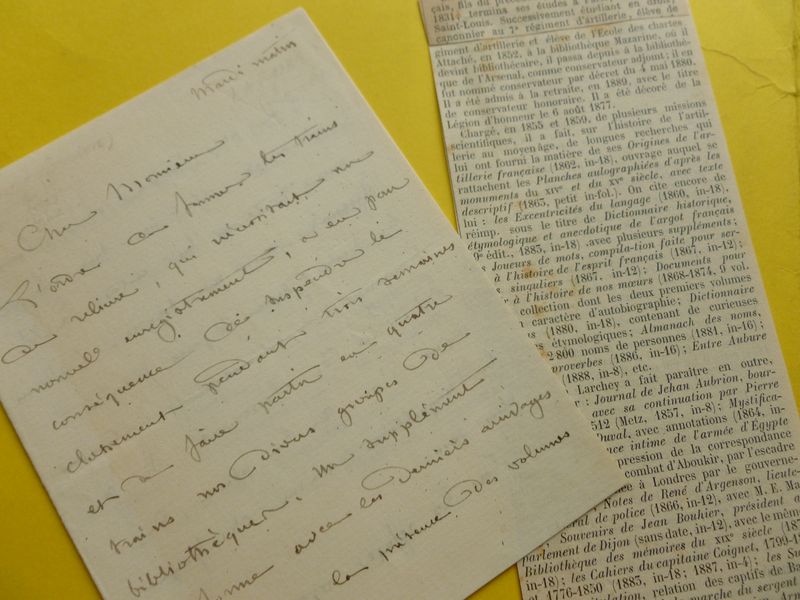 Mardi matin
Cher Monsieur
L'ordre de former les trains
de reliure, qui nécessitait un
nouvel enregistrement, a eu pour
conséquence de suspendre le
pendant trois semaines
et de faire partir en quatre
trains nos divers groupes de
bibliothèques. Un supplément
avec les derniers arrivages
la présence des volumes
çais, fils du
1831, termina ses études à
Saint-Louis. Successivement étudiant en droit,
canonnier au 7e régiment d'artillerie, élève de
giment d'artillerie et élève de l'École des chartes
Attaché, en 1852, à la bibliothèque Mazarine, où il
devint bibliothécaire, il passa depuis à la bibliothè-
que de l'Arsenal, comme conservateur adjoint ; il en
fut nommé conservateur par décret du 4 mai 1880.
Il a été admis à la retraite, en 1889, avec le titre
de conservateur honoraire. Il a été décoré de la
Légion d'honneur le 6 août 1877.
Chargé, en 1855 et 1859, de plusieurs missions
scientifiques, il a fait, sur l'histoire de l'artil-
lerie au moyen âge, de longues recherches qui
lui ont fourni la matière de ses Origines de l'ar-
tillerie française (1862, in-18), ouvrage auquel se
rattachent les Planches autographiées d'après les
monuments du XIVe et du XVe siècle, avec texte
descriptif (1863, petit in-fol.). On cite encore de
lui : les Excentricités du langage (1860, in-18),
réimp. sous le titre de Dictionnaire historique,
étymologique et anecdotique de l'argot français
9e édit., 1883, in-18) avec plusieurs suppléments ;
Joueurs de mots, compilation faite pour ser-
à l'histoire de l'esprit français (1867, in-12) ;
singuliers (1867, in-12) ; Documents pour
à l'histoire de nos mœurs (1868-1874, 9 vol.
collection dont les deux premiers volumes
caractère d'autobiographie ; Dictionnaire
(1880, in-18), contenant de curieuses
étymologiques ; Almanach des noms,
2 800 noms de personnes (1881, in-16) ;
proverbes (1886, in-16) ; Entre Aubure
(1888, in-8), etc.
Larchey a fait paraître en outre,
: Journal de Jehan Aubrion, bour-
avec sa continuation par Pierre
512 (Metz, 1857, in-8) ; Mystifica-
Duval, avec annotations (1864, in-
intime de l'armée d'Égypte
pression de la correspondance
combat d'Aboukir, par l'escadre
à Londres par le gouverne-
Notes de René d'Argenson, lieute-
de police (1866, in-12), avec M. E. Ma
Souvenirs de Jean Bouhier, président a
parlement de Dijon (sans date, in-12), avec le mêm
Bibliothèque des mémoires du XIXe siècle (18
in-18) ; les Cahiers du capitaine Coignet, 1799-1
et 1776-1850 (1883, in-18 ; 1887, in-4) ; les Su
relation des captifs de Ba
marche du sergent